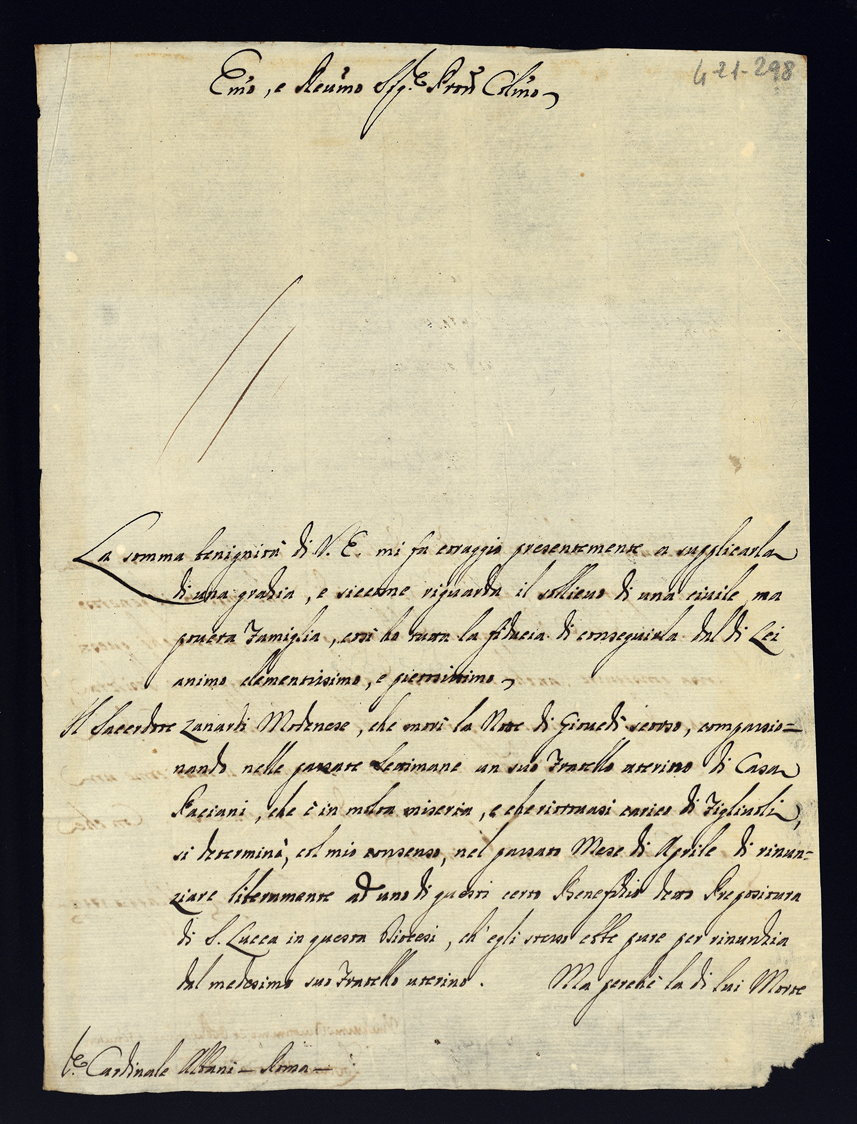 4-21-298
Em̃o, e Reum̃o Sig.re Pron̄ Colm̃o
La somma benignità di V. E. mi fa coraggio presentemente a supplicarla
di una grazia, e siccome riguarda il sollieuo di una ciuile ma
pouera Famiglia, così ho tutta la fiducia di conseguirla dal di Lei
animo clementissimo, e pietosissimo
Il Sacerdote Zanardi Modenese, che morì la Notte di Giouedì scorso, compassio=
nando nelle passate Settimane un suo Fratello uterino di Casa
Paciani, che è in molta miseria, e che ritrouasi carico di Figliuoli,
si determinò, col mio consenso, nel passato Mese di Aprile di rinun=
ziare liberamente ad uno di questi certo Benefizio detto Prepositura
di S. Lucca in questa Diocesi, ch'egli stesso ebbe pure per rinunzia
dal medesimo suo Fratello uterino. Ma perchè la di lui Morte
Cardinale Albani - Roma -